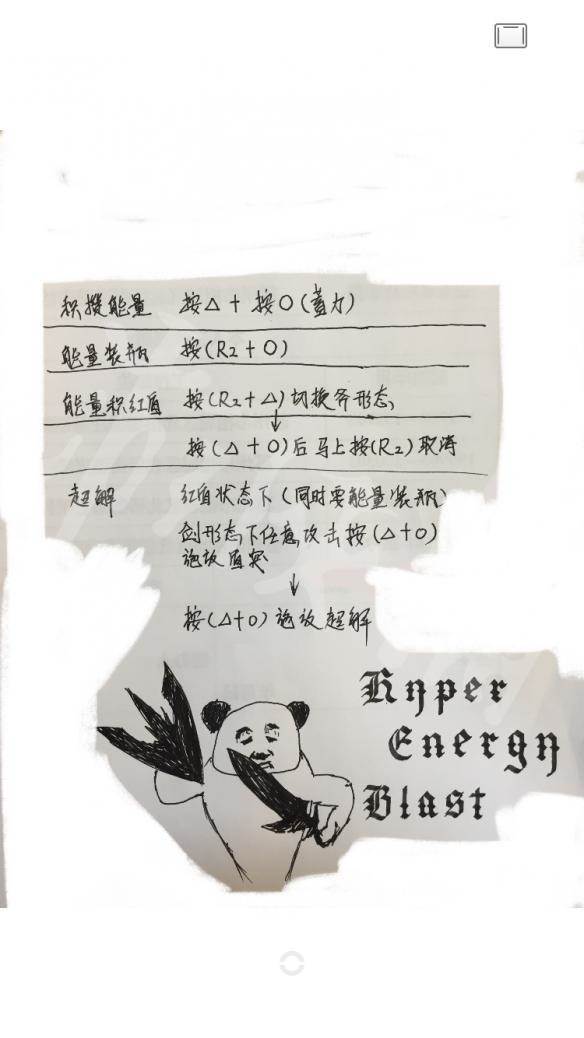 积攒能量 按△ + 按O(蓄力)
能量装瓶 按(R2 + O)
能量积红盾 按(R2 + △)切换斧形态
↓
按(△ + O)后马上按(R2)取消
超解 红盾状态下(同时要能量装瓶)
剑形态下任意攻击按(△+O)
施放盾突
↓
按(△+O)施放超解
Hyper
Energy
Blast